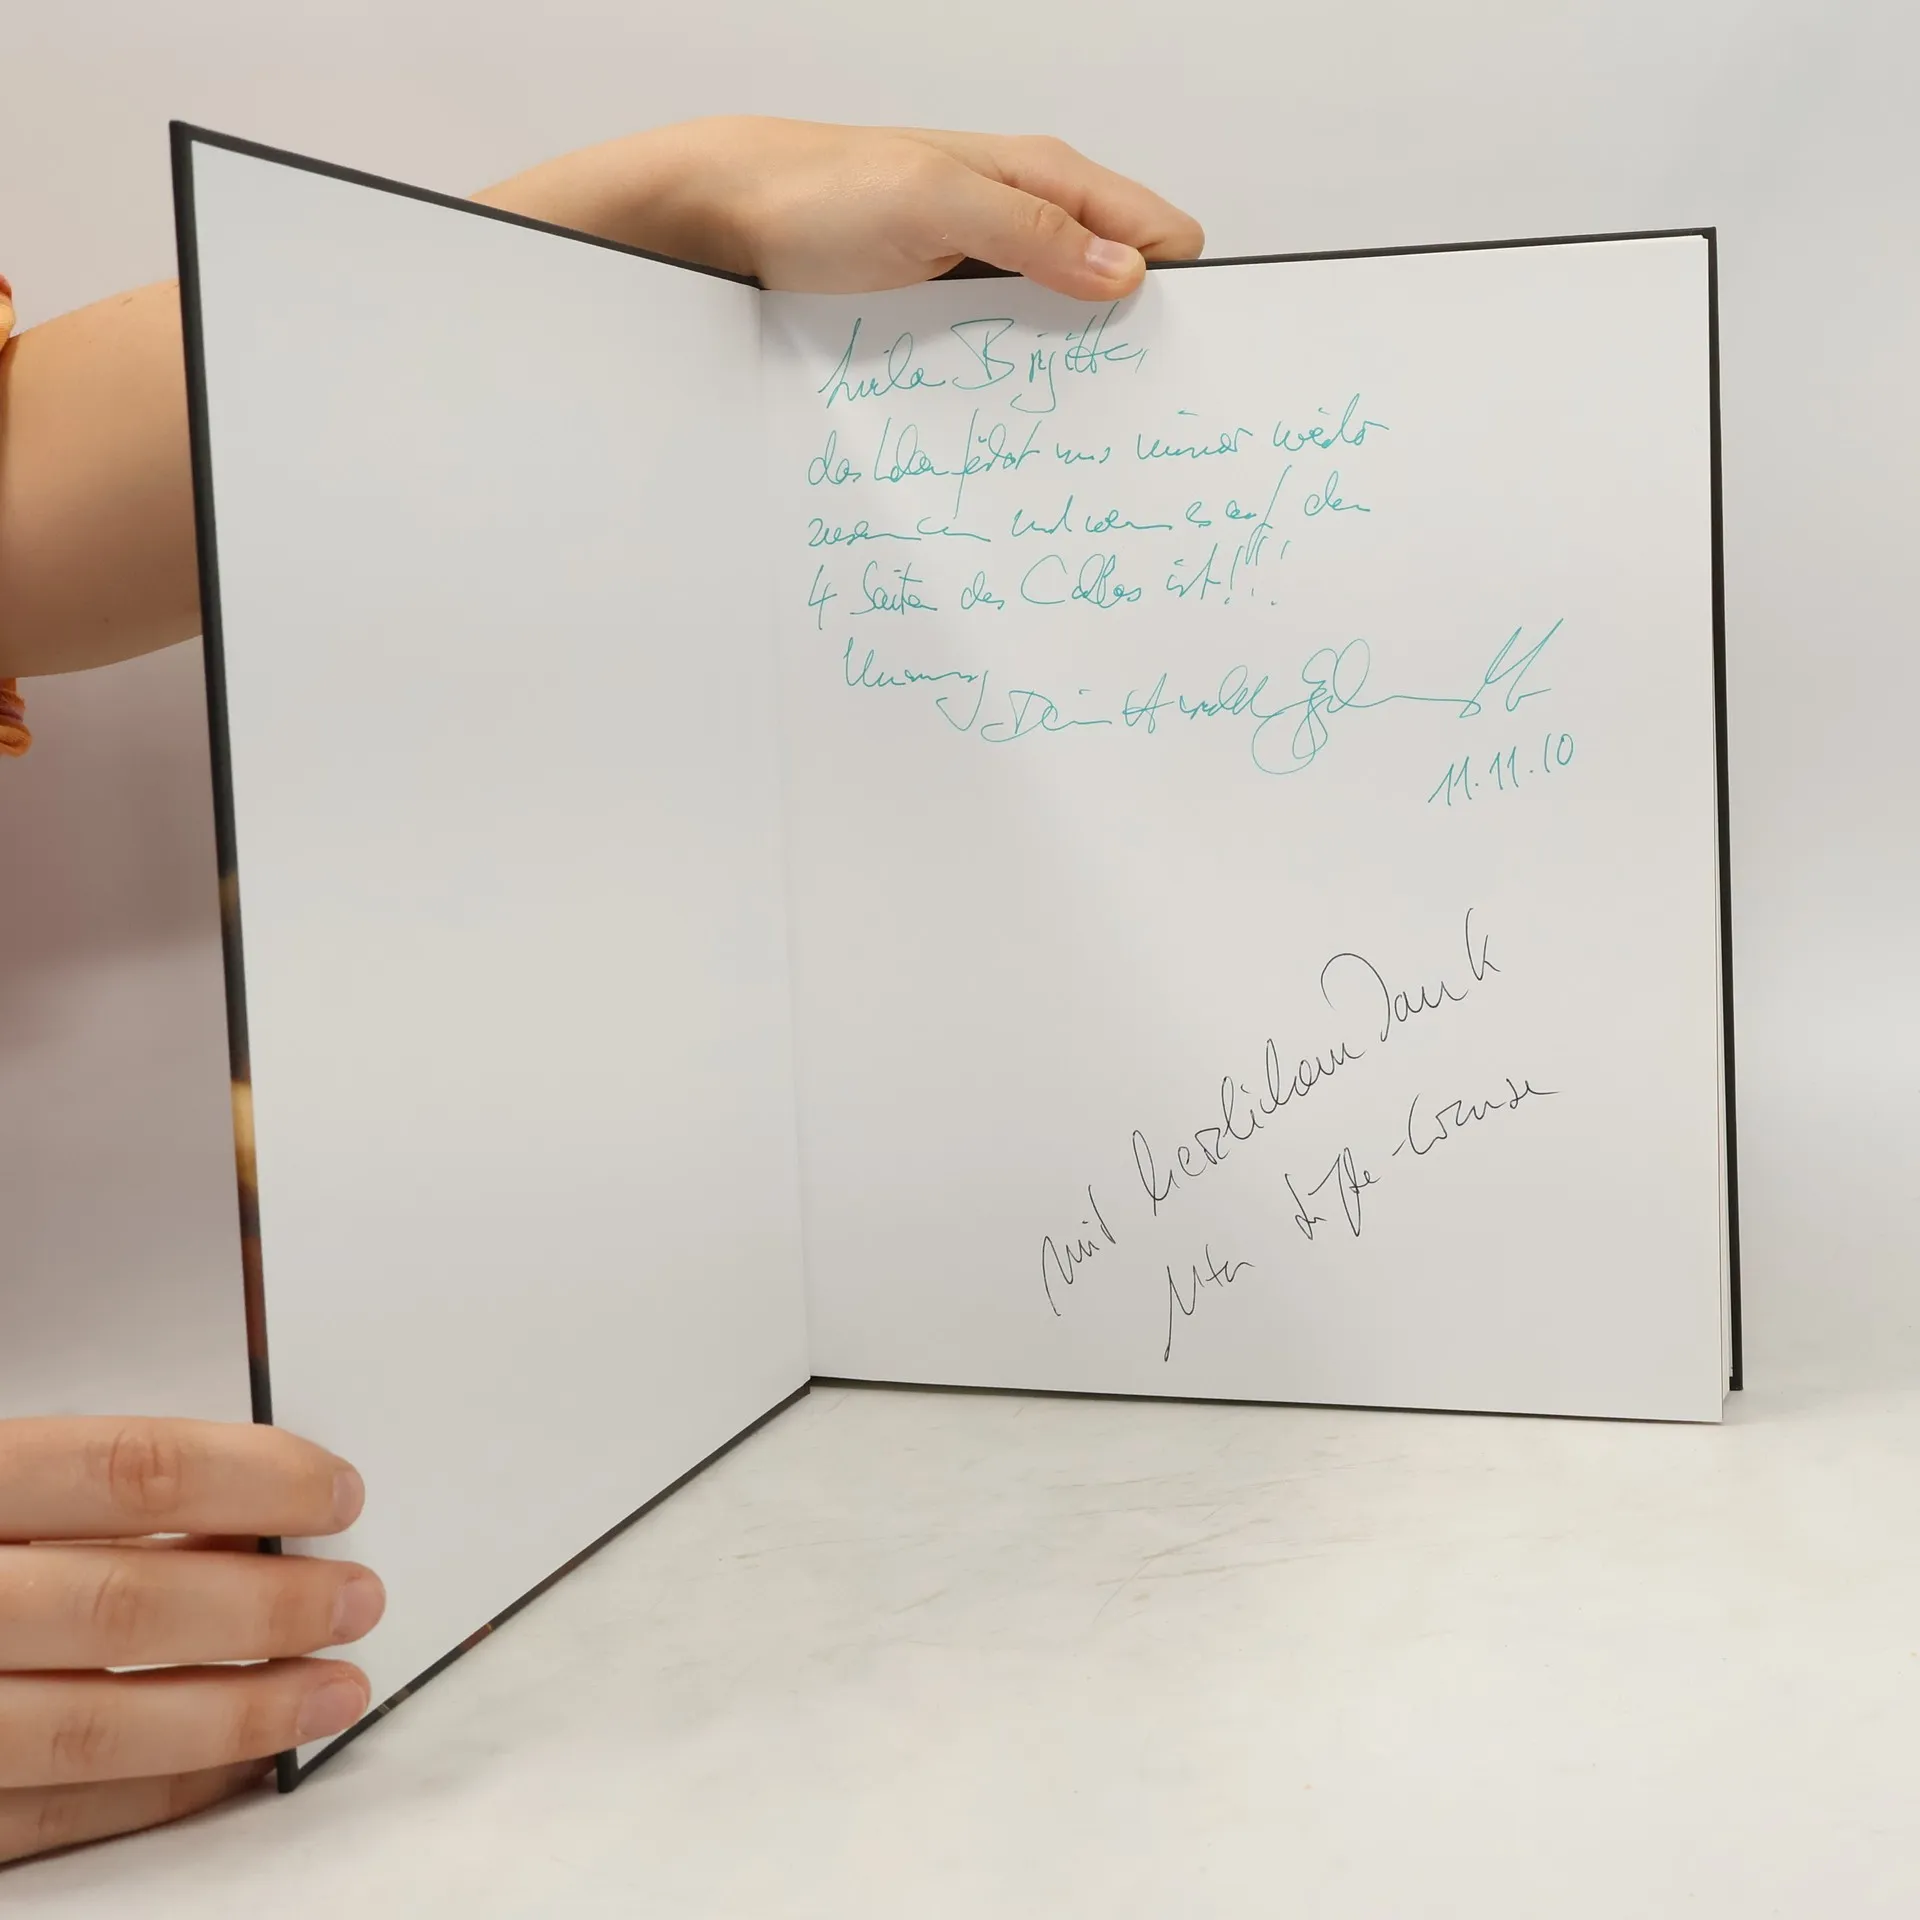 Liebe Brigitte,
das Leben führt uns immer wieder
zusammen und wenn es auf den
4 Saiten des Cellos ist!!!
Dein Arnold
11.11.10
mit herzlichem Dank